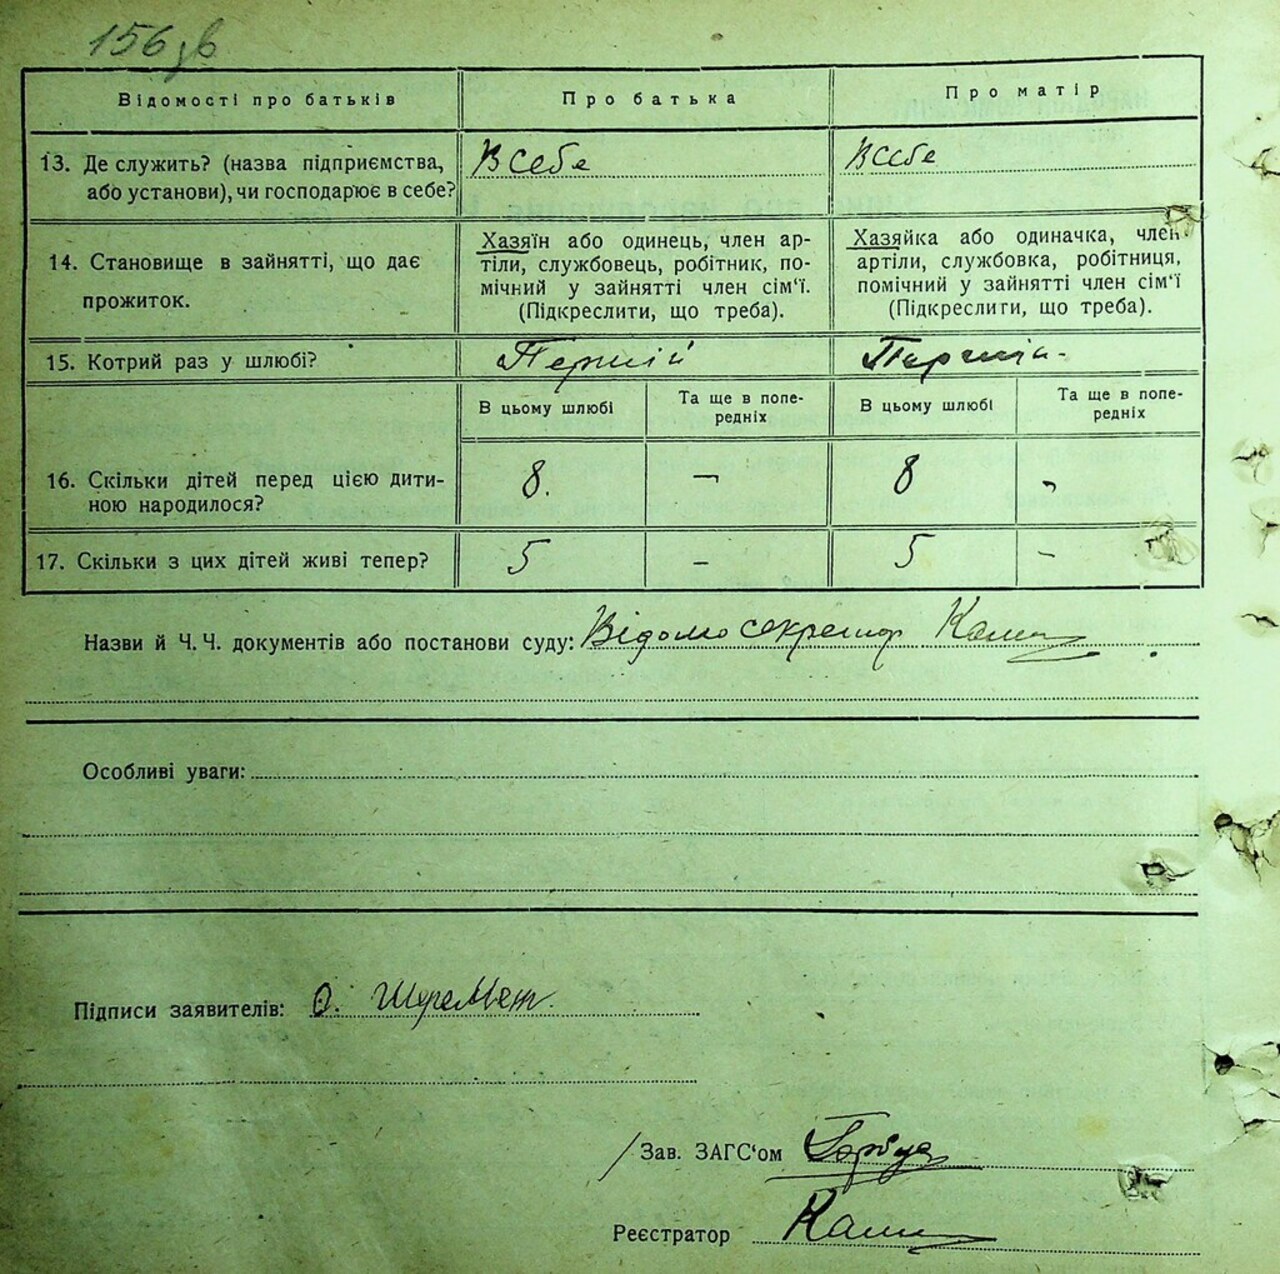 156 зв
Відомості про батьків Про батька Про матір
13. Де служить? (назва підприємства, або установи), чи господарює в себе? В себе В себе
14. Становище в зайнятті, що дає прожиток.
Хазяїн або одинець, член артіли, службовець, робітник, помічний у зайнятті член сім'ї. (Підкреслити, що треба).
Хазяйка або одиначка, член артіли, службовка, робітниця, помічний у зайнятті член сім'ї (Підкреслити, що треба).
15. Котрий раз у шлюбі? Перший Перший
В цьому шлюбі Та ще в попередніх В цьому шлюбі Та ще в попередніх
16. Скільки дітей перед цією дитиною народилося? 8. – 8 –
17. Скільки з цих дітей живі тепер? 5 – 5 –
Назви й Ч. Ч. документів або постанови суду: Відомо секретар
Особливі уваги:
Підписи заявителів: О. Шеремет
Зав. ЗАГС'ом
Реєстратор